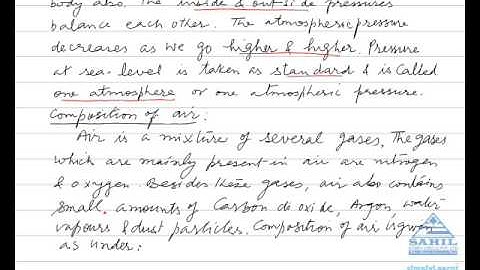 body also. The inside & outside pressures
balance each other. The atmospheric pressure
decreases as we go higher & higher. Pressure
at sea-level is taken as standard & is called
one atmosphere or one atmospheric pressure.
Composition of air:
Air is a mixture of several gases, The gases
which are mainly present in air are nitrogen
& oxygen. Besides these gases, air also contains
small amounts of Carbon de oxide, Argon, water-
vapours & dust particles. Composition of air is given
as under:
SAHIL